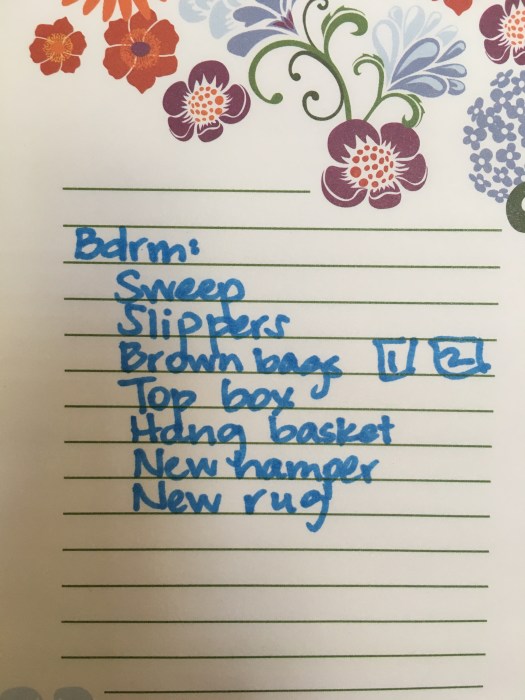 Bdrm:
Sweep
Slippers
Brown bags 1 2
Top box
Hang basket
New hamper
New rug